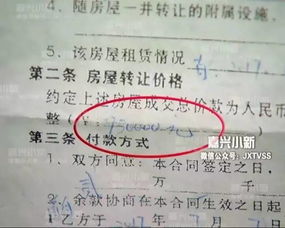 4. 随房屋一并转让的附属设施.
嘉兴小新
5. 该房屋租赁情况
第二条 房屋转让价格
约定上述房屋成交总价款为人民币
整(¥: 950000元
第三条 付款方式
嘉兴小新
微信公众号:JXTVSS
1. 双方同意:本合同签定之日,
万 千
2. 余款协商在本合同生效之日起
乙方于